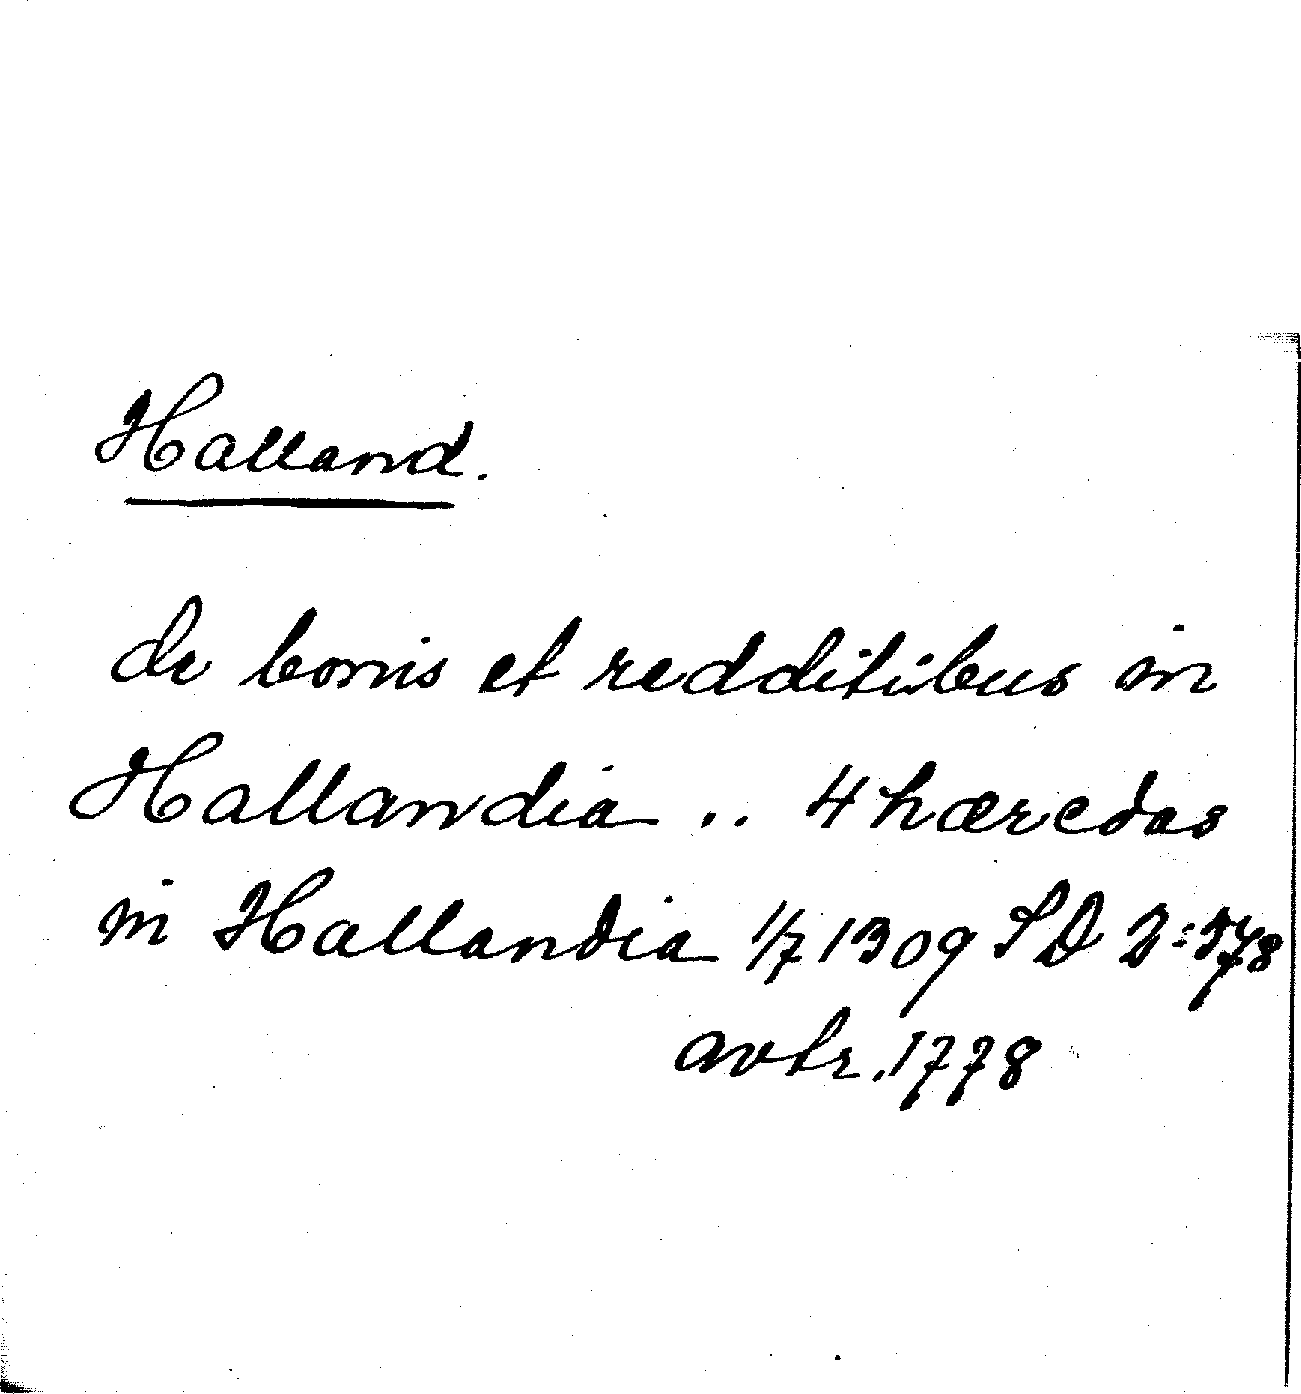 Halland.
de bonis et redditibus in
Hallandia .. 4 hæredas
in Hallandia 1/7 1309 SD 2:578
avskr. 1778